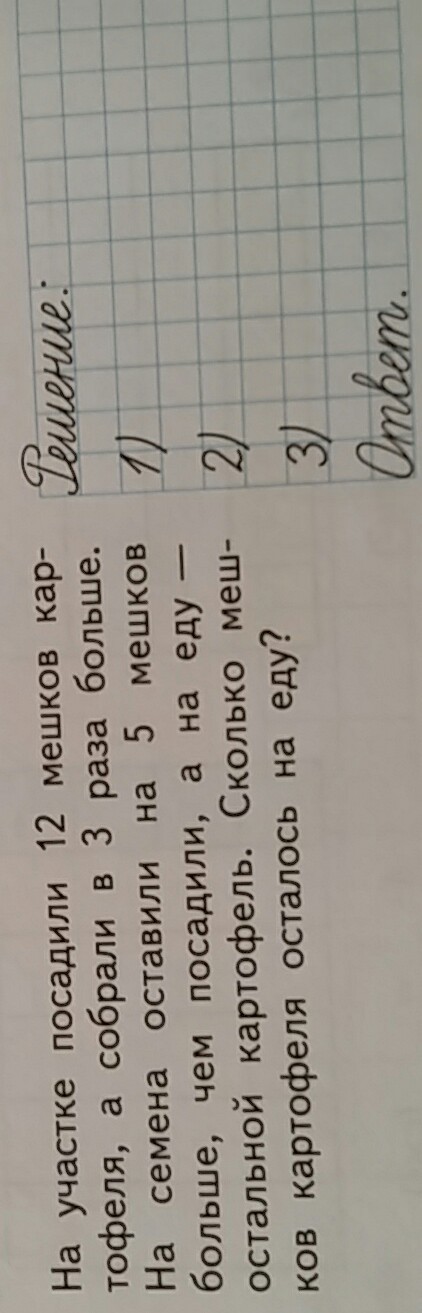 На участке посадили 12 мешков кар-
тофеля, а собрали в 3 раза больше.
На семена оставили на 5 мешков
больше, чем посадили, а на еду —
остальной картофель. Сколько меш-
ков картофеля осталось на еду?
Решение:
1)
2)
3)
Ответ.